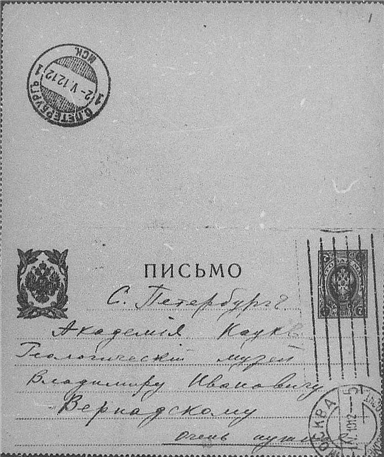 1
С. ПЕТЕРБУРГЪ
2-V.1212
МСК.
ПИСЬМО
С. Петербургъ
Академія Наукъ
Геологическій музей
Владимиру Ивановичу
Вернадскому
очень нужное
МОСКВА